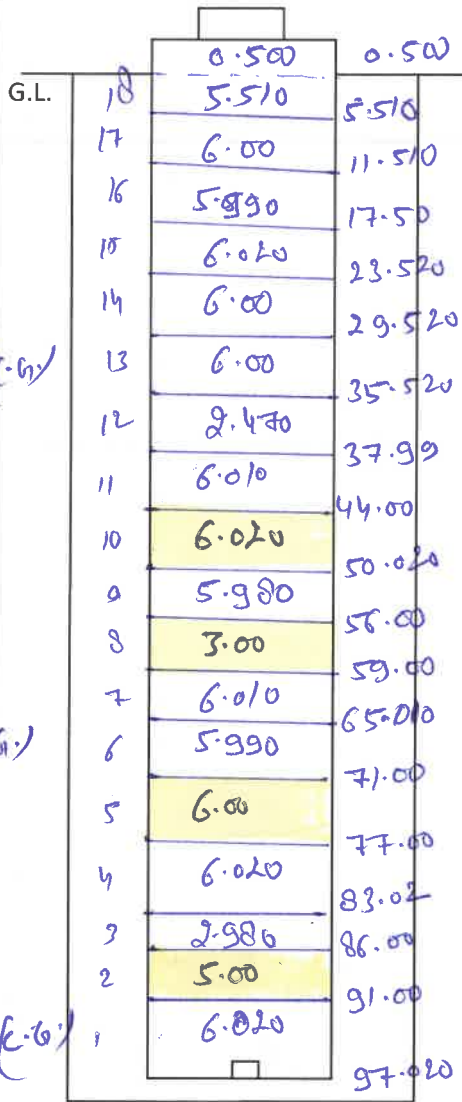 0.500 0.500
G.L. 18 5.510 5.510
17 6.00 11.510
16 5.990 17.50
15 6.020 23.520
14 6.00 29.520
13 6.00 35.520
12 2.470 37.99
11 6.010 44.00
10 6.020 50.020
9 5.980 56.00
8 3.00 59.00
7 6.010 65.010
6 5.990 71.00
5 6.00 77.00
4 6.020 83.02
3 2.980 86.00
2 5.00 91.00
(C.G.) 1 6.020 97.020